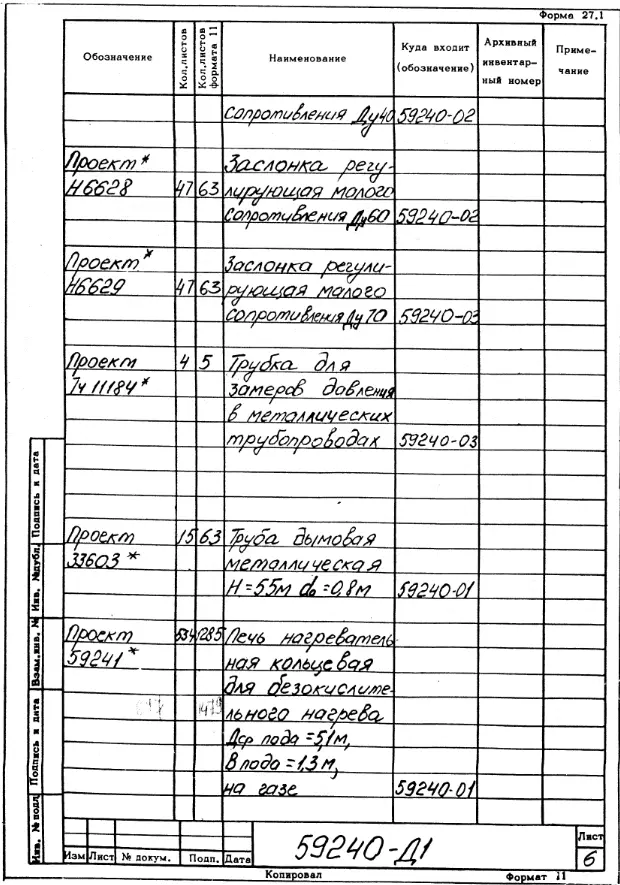 Форма 27.1
Обозначение Кол.листов Кол.листов формата 11 Наименование Куда входит (обозначение) Архивный инвентарный номер Примечание
сопротивления Ду40 59240-02
Проект* Заслонка регу-
Н6628 47 63 лирующая малого
сопротивления Ду60 59240-02
Проект* Заслонка регули-
Н6629 47 63 рующая малого
сопротивления Ду70 59240-03
Проект 4 5 Трубка для
7ч 11184* замеров давления
в металлических
трубопроводах 59240-03
Проект 15 63 Труба дымовая
33603* металлическая
Н=55м d₀=0,8м 59240-01
Проект 534 1285 Печь нагреватель-
59241* ная кольцевая
для безокислите-
льного нагрева
Дср пода=5,1м,
В пода=1,3м,
на газе 59240-01
Инв. № подл. Подпись и дата Взам.инв. № Инв. №дубл. Подпись и дата
Изм Лист № докум. Подп. Дата
59240-Д1
Лист
6
Копировал Формат 11